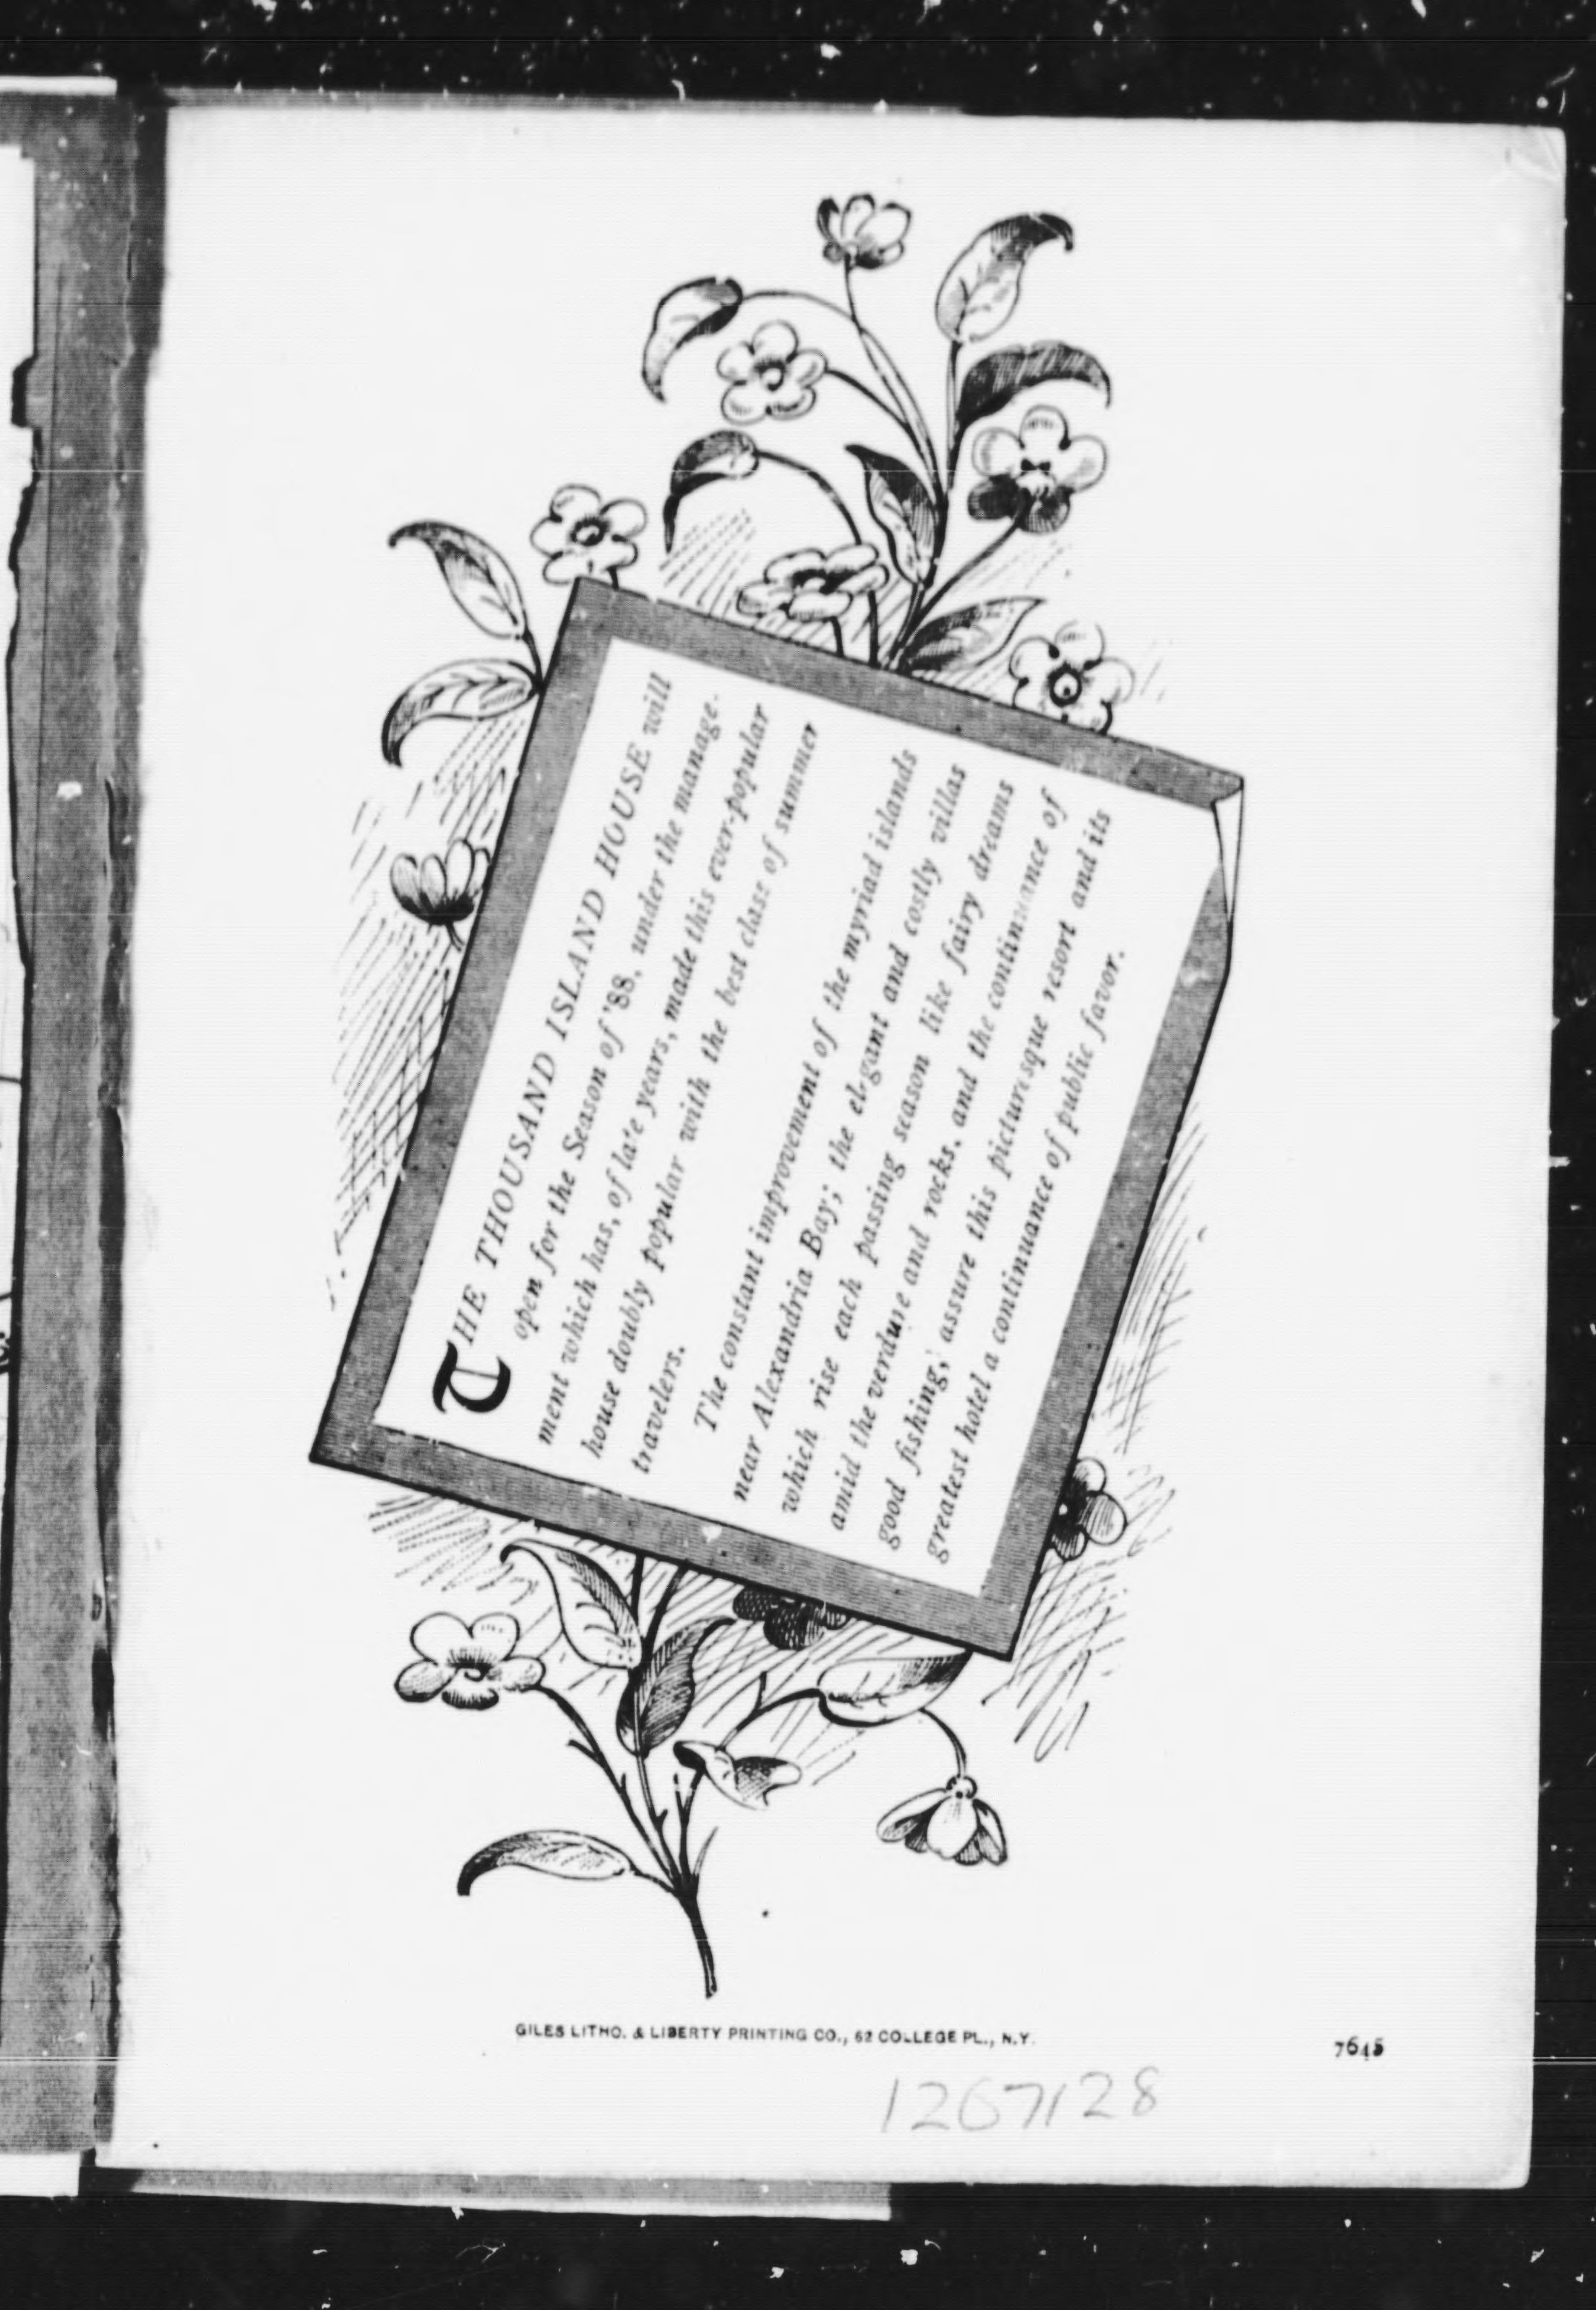 THE THOUSAND ISLAND HOUSE will
open for the Season of '88, under the manage-
ment which has, of late years, made this ever-popular
house doubly popular with the best class of summer
travelers.
The constant improvement of the myriad islands
near Alexandria Bay; the elegant and costly villas
which rise each passing season like fairy dreams
amid the verdure and rocks, and the continuance of
good fishing, assure this picturesque resort and its
greatest hotel a continuance of public favor.
GILES LITHO. & LIBERTY PRINTING CO., 62 COLLEGE PL., N.Y.
7645
1267128